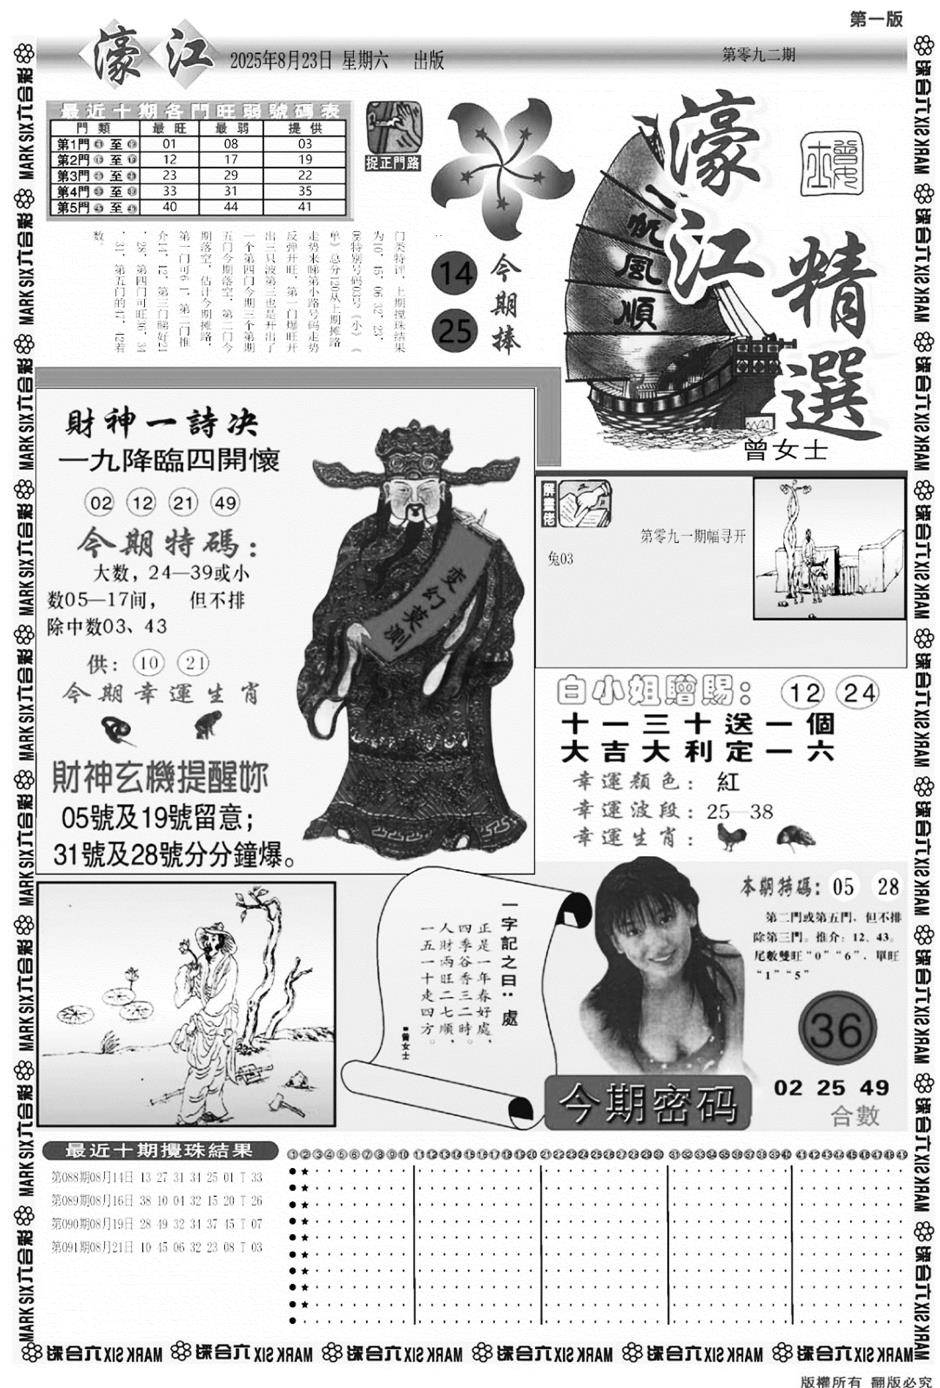 第一版
濠江 2025年8月23日 星期六 出版 第零九二期
最近十期各門旺弱號碼表
門類 最旺 最弱 提供
第1門 至 01 08 03
第2門 至 12 17 19
第3門 至 23 29 22
第4門 至 33 31 35
第5門 至 40 44 41
捉正門路
14
25
今期捧
一帆風順
濠江
精選
曾女士
財神一詩决
一九降臨四開懷
02 12 21 49
今期特碼：
大数，24—39或小
数05—17间， 但不排
除中数03、43
供：10 21
今期幸運生肖
財神玄機提醒妳
05號及19號留意；
31號及28號分分鐘爆。
变幻莫测
解畫佬
第零九一期幅寻开
兔03
白小姐贈賜：12 24
十一三十送一個
大吉大利定一六
幸運顏色：紅
幸運波段：25—38
幸運生肖：
一字記之曰：處
正是一年春好處，
四季谷香三二時。
人財兩旺二七順，
一五一十走四方。
■曾女士
本期特碼：05 28
第二門或第五門，但不排
除第三門。推介：12、43。
尾數雙旺“0”“6”，單旺
“1”“5”
36
今期密码
02 25 49
合數
最近十期攪珠結果
第088期08月14日 13 27 31 34 25 01 T 33
第089期08月16日 38 10 04 32 15 20 T 26
第090期08月19日 28 49 32 34 37 45 T 07
第091期08月21日 10 45 06 32 23 08 T 03
MARK SIX六合彩
版權所有 翻版必究